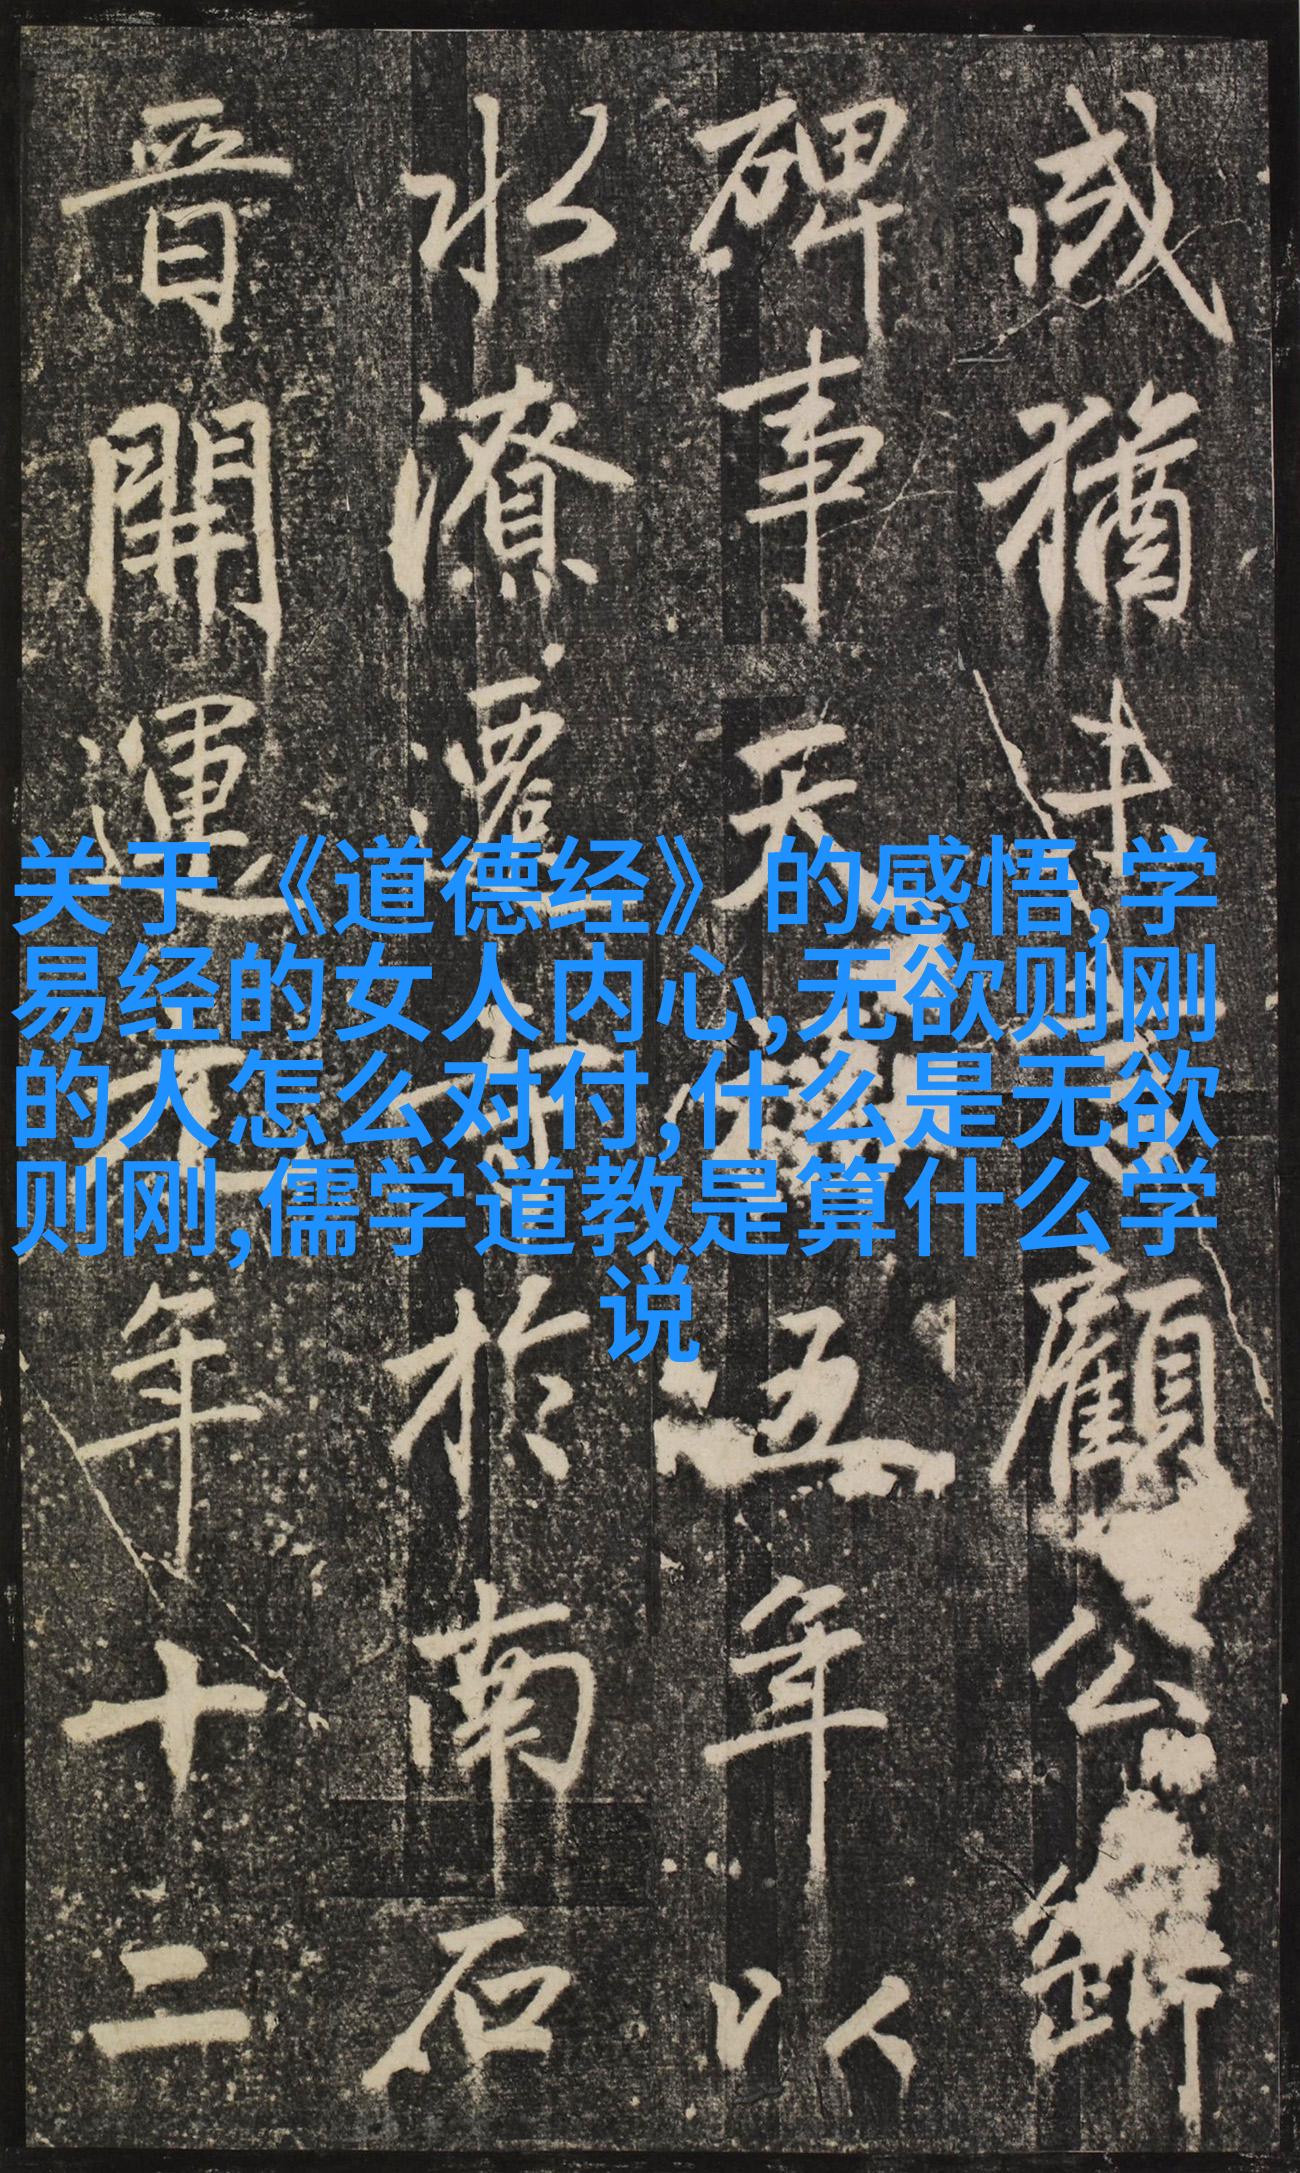 关于《道德经》的感悟,学
易经的女人内心,无欲则刚
的人怎么对付,什么是无欲
则刚,儒学道教是算什么学
说
猶 顧公
碑事天 五年以
水潦遷寺於南石
晉開運元年十二